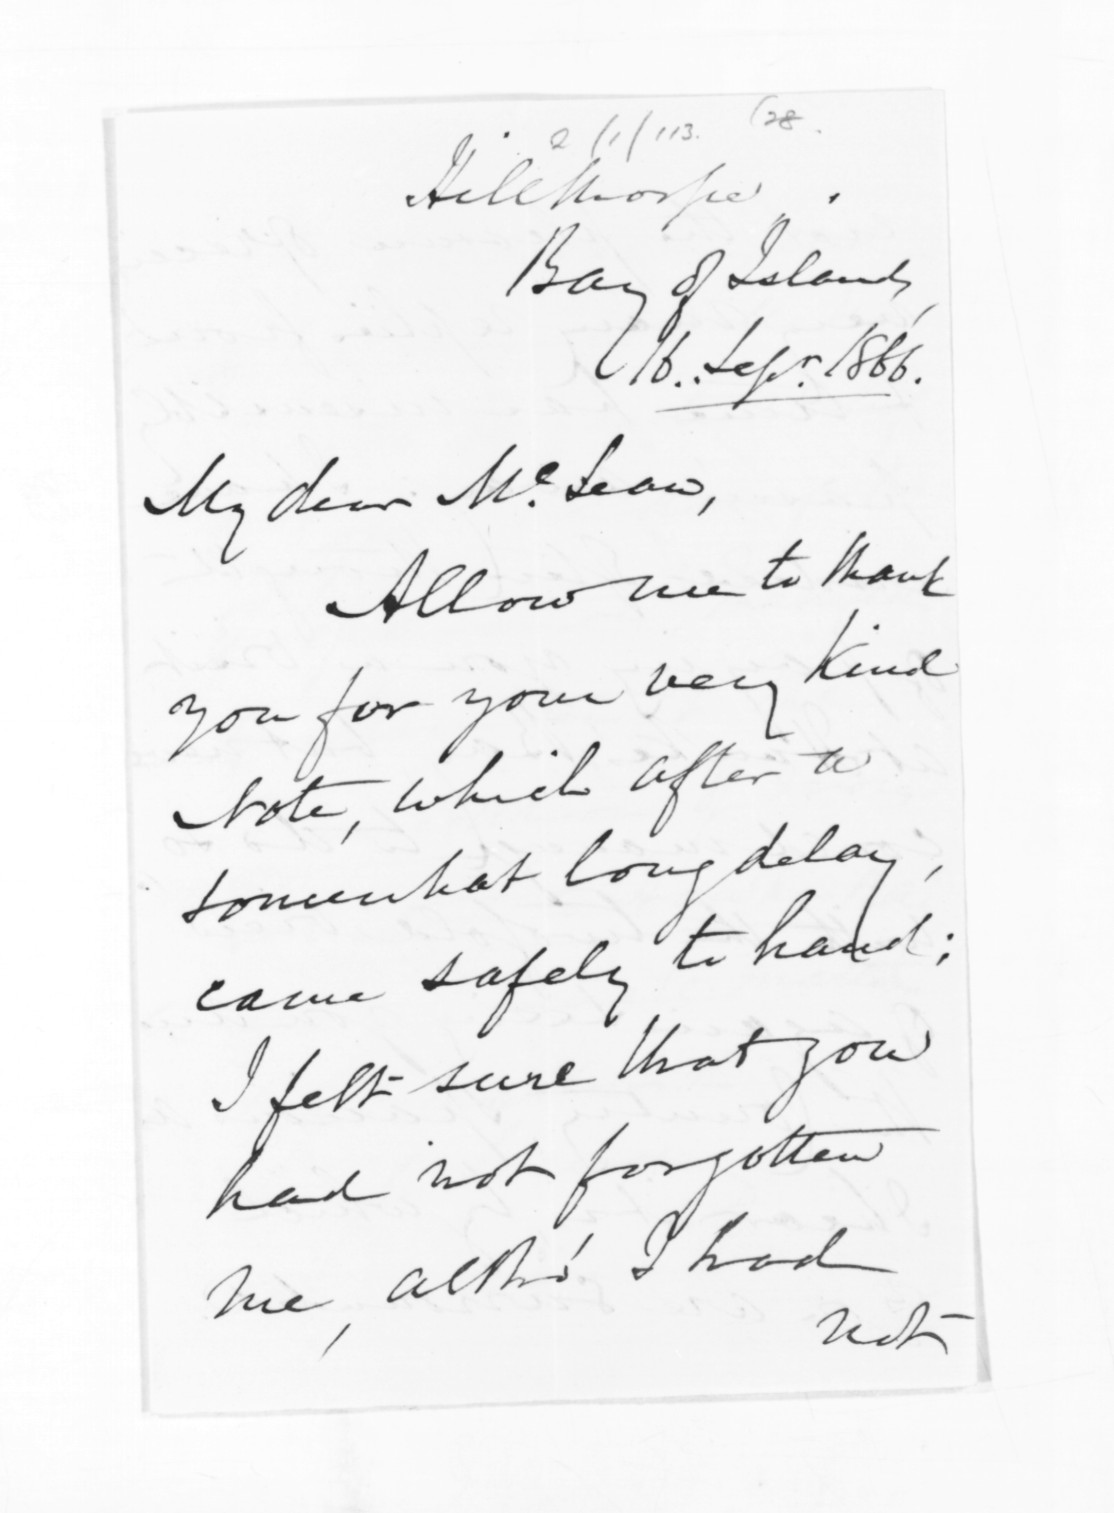 2/1/113. (28.
Hillthorpe.
Bay of Islands,
16. Sepr. 1866.
My dear McLean,
Allow me to thank
you for your very kind
Note, which after a
somewhat long delay,
came safely to hand;
I felt sure that you
had not forgotten
me, altho' I had
not